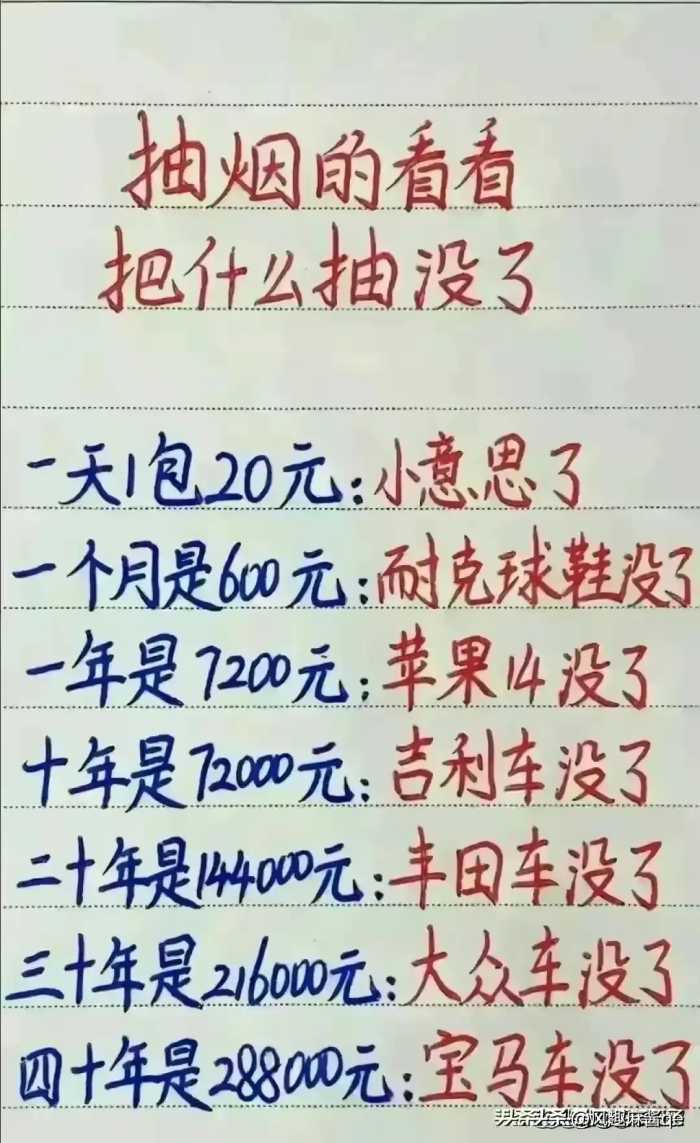 抽烟的看看
把什么抽没了
一天1包20元:小意思了
一个月是600元:耐克球鞋没了
一年是7200元:苹果14没了
十年是72000元:吉利车没了
二十年是144000元:丰田车没了
三十年是216000元:大众车没了
四十年是288000元:宝马车没了